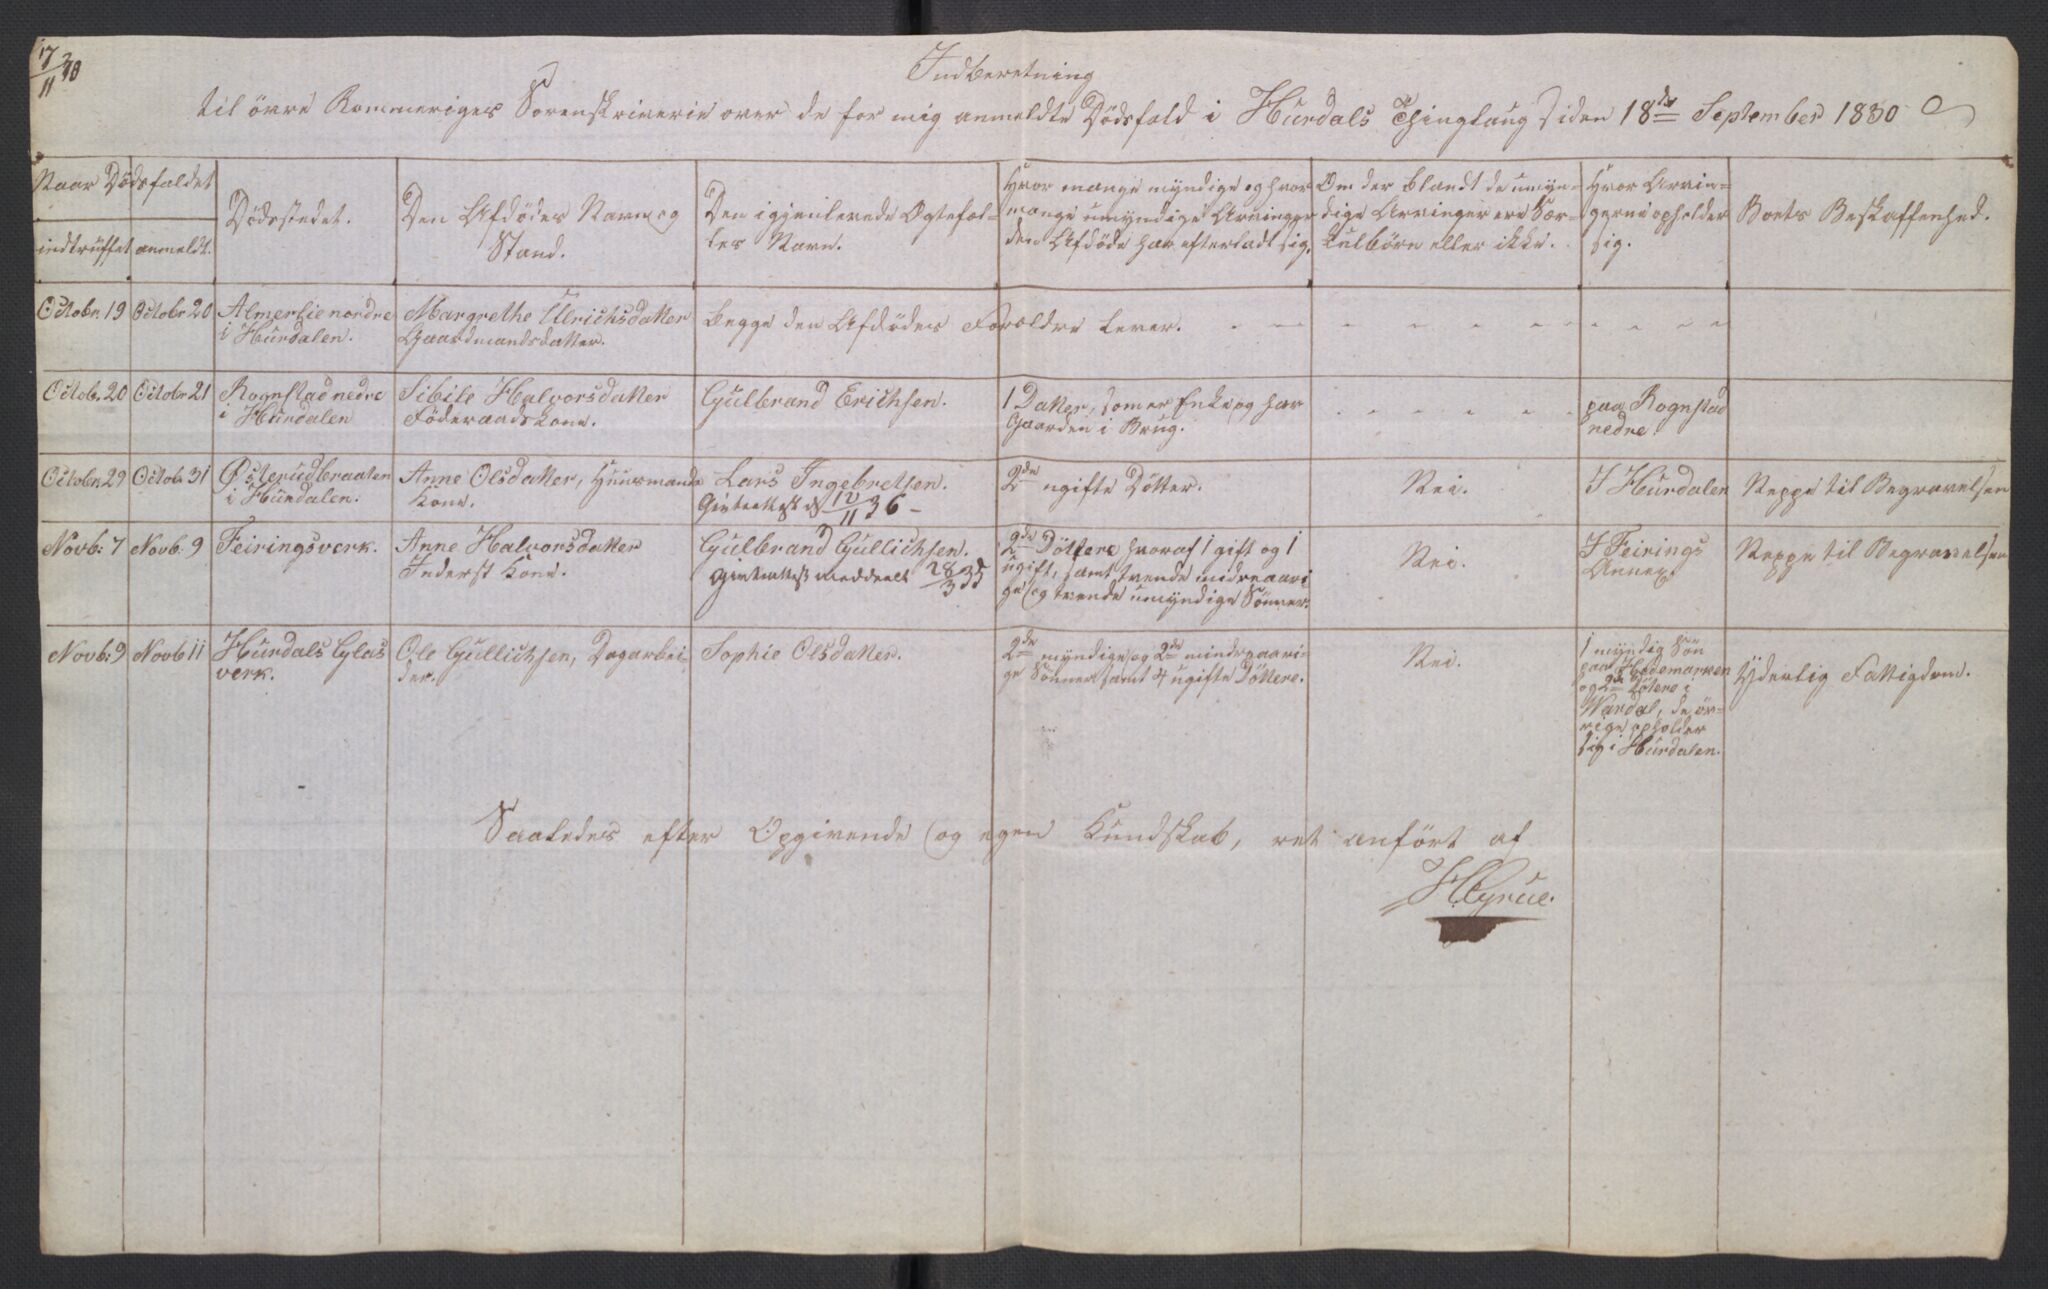 17/11 30
Indberetning
til övre Rommeriges Sorenskriverie over de for mig anmeldte Dödsfald i Hurdals Thinglaug siden 18de September 1830
Naar Dödsfaldet
indtruffet anmeldt.
Dödsstedet.
Den Afdödes Navn og
Stand.
Den igjenlevende Ægtefæl-
les Navn.
Hvor mange myndige og hvor
mange umyndige Arvinger
den Afdöde har efterladt sig.
Om der blandt de umyn-
dige Arvinger ere Sær-
kulbörn eller ikke.
Hvor Arvin-
gerne opholder
sig.
Boets Beskaffenhed.
Octobr 19 Octobr 20 Almerlie nordre
i Hurdalen.
Margrethe Ulrichsdatter
Gaardmandsdatter.
begge den Afdödes Forældre lever.
Octobr 20 Octobr 21 Rognstad nedre
i Hurdalen
Sibile Halvorsdatter
Föderaadskone.
Gulbrand Erichsen.
1 Datter, som er Enke og har
Gaarden i Brug.
paa Rognstad
nedre.
Octobr 29 Octob. 31 Østerudbraaten
i Hurdalen.
Anne Olsdatter, Huusmands
Kone.
Lars Ingebretsen.
Givteattest d 12/11 36 -
2de ugifte Dötter.
Nei.
I Hurdalen
Neppe til Begravelsen
Novb: 7 Novb. 9 Feiringsverk.
Anne Halvorsdatter
Inderst Kone.
Gulbrand Gullichsen.
Givteattest meddeelt 28/3 35
2de Döttere hvoraf 1 gift og 1
ugift, samt trende midreaari
ge og trende umyndige Sönner.
Nei.
I Feirings
Annex.
Neppe til Begravelsen
Novb: 9 Novb 11 Hurdals Glas
verk.
Ole Gullichsen, Dagarbei-
der.
Sophie Olsdatter.
2de myndige og 2de mindreaari-
ge Sönner samt 4 ugifte Döttere.
Nei.
1 myndig Sön
paa Hedemarken
og 2de Dötere i
Wardal, de öv-
rige opholder
sig i Hurdalen.
Yderlig Fattigdom.
Saaledes efter Opgivende og egen Kundskab, ret anfört af